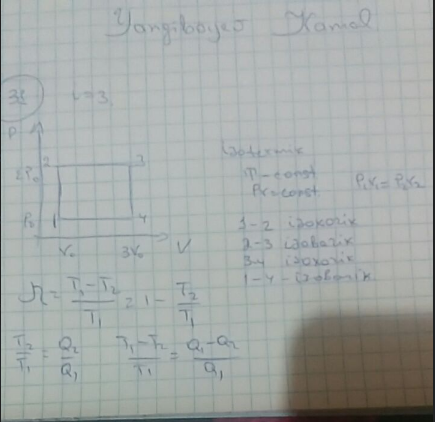 Yangiboyev Kamol
31 i=3
P
2 3
2P₀
P₀ 1 4
V₀ 3V₀ V
izotermik
T-const
PV=const P₁V₁=P₂V₂
1-2 izoxorik
2-3 izobarik
3-4 izoxorik
1-4-izobarik
η = T₁-T₂/T₁ = 1 - T₂/T₁
T₂/T₁ = Q₂/Q₁ T₁-T₂/T₁ = Q₁-Q₂/Q₁